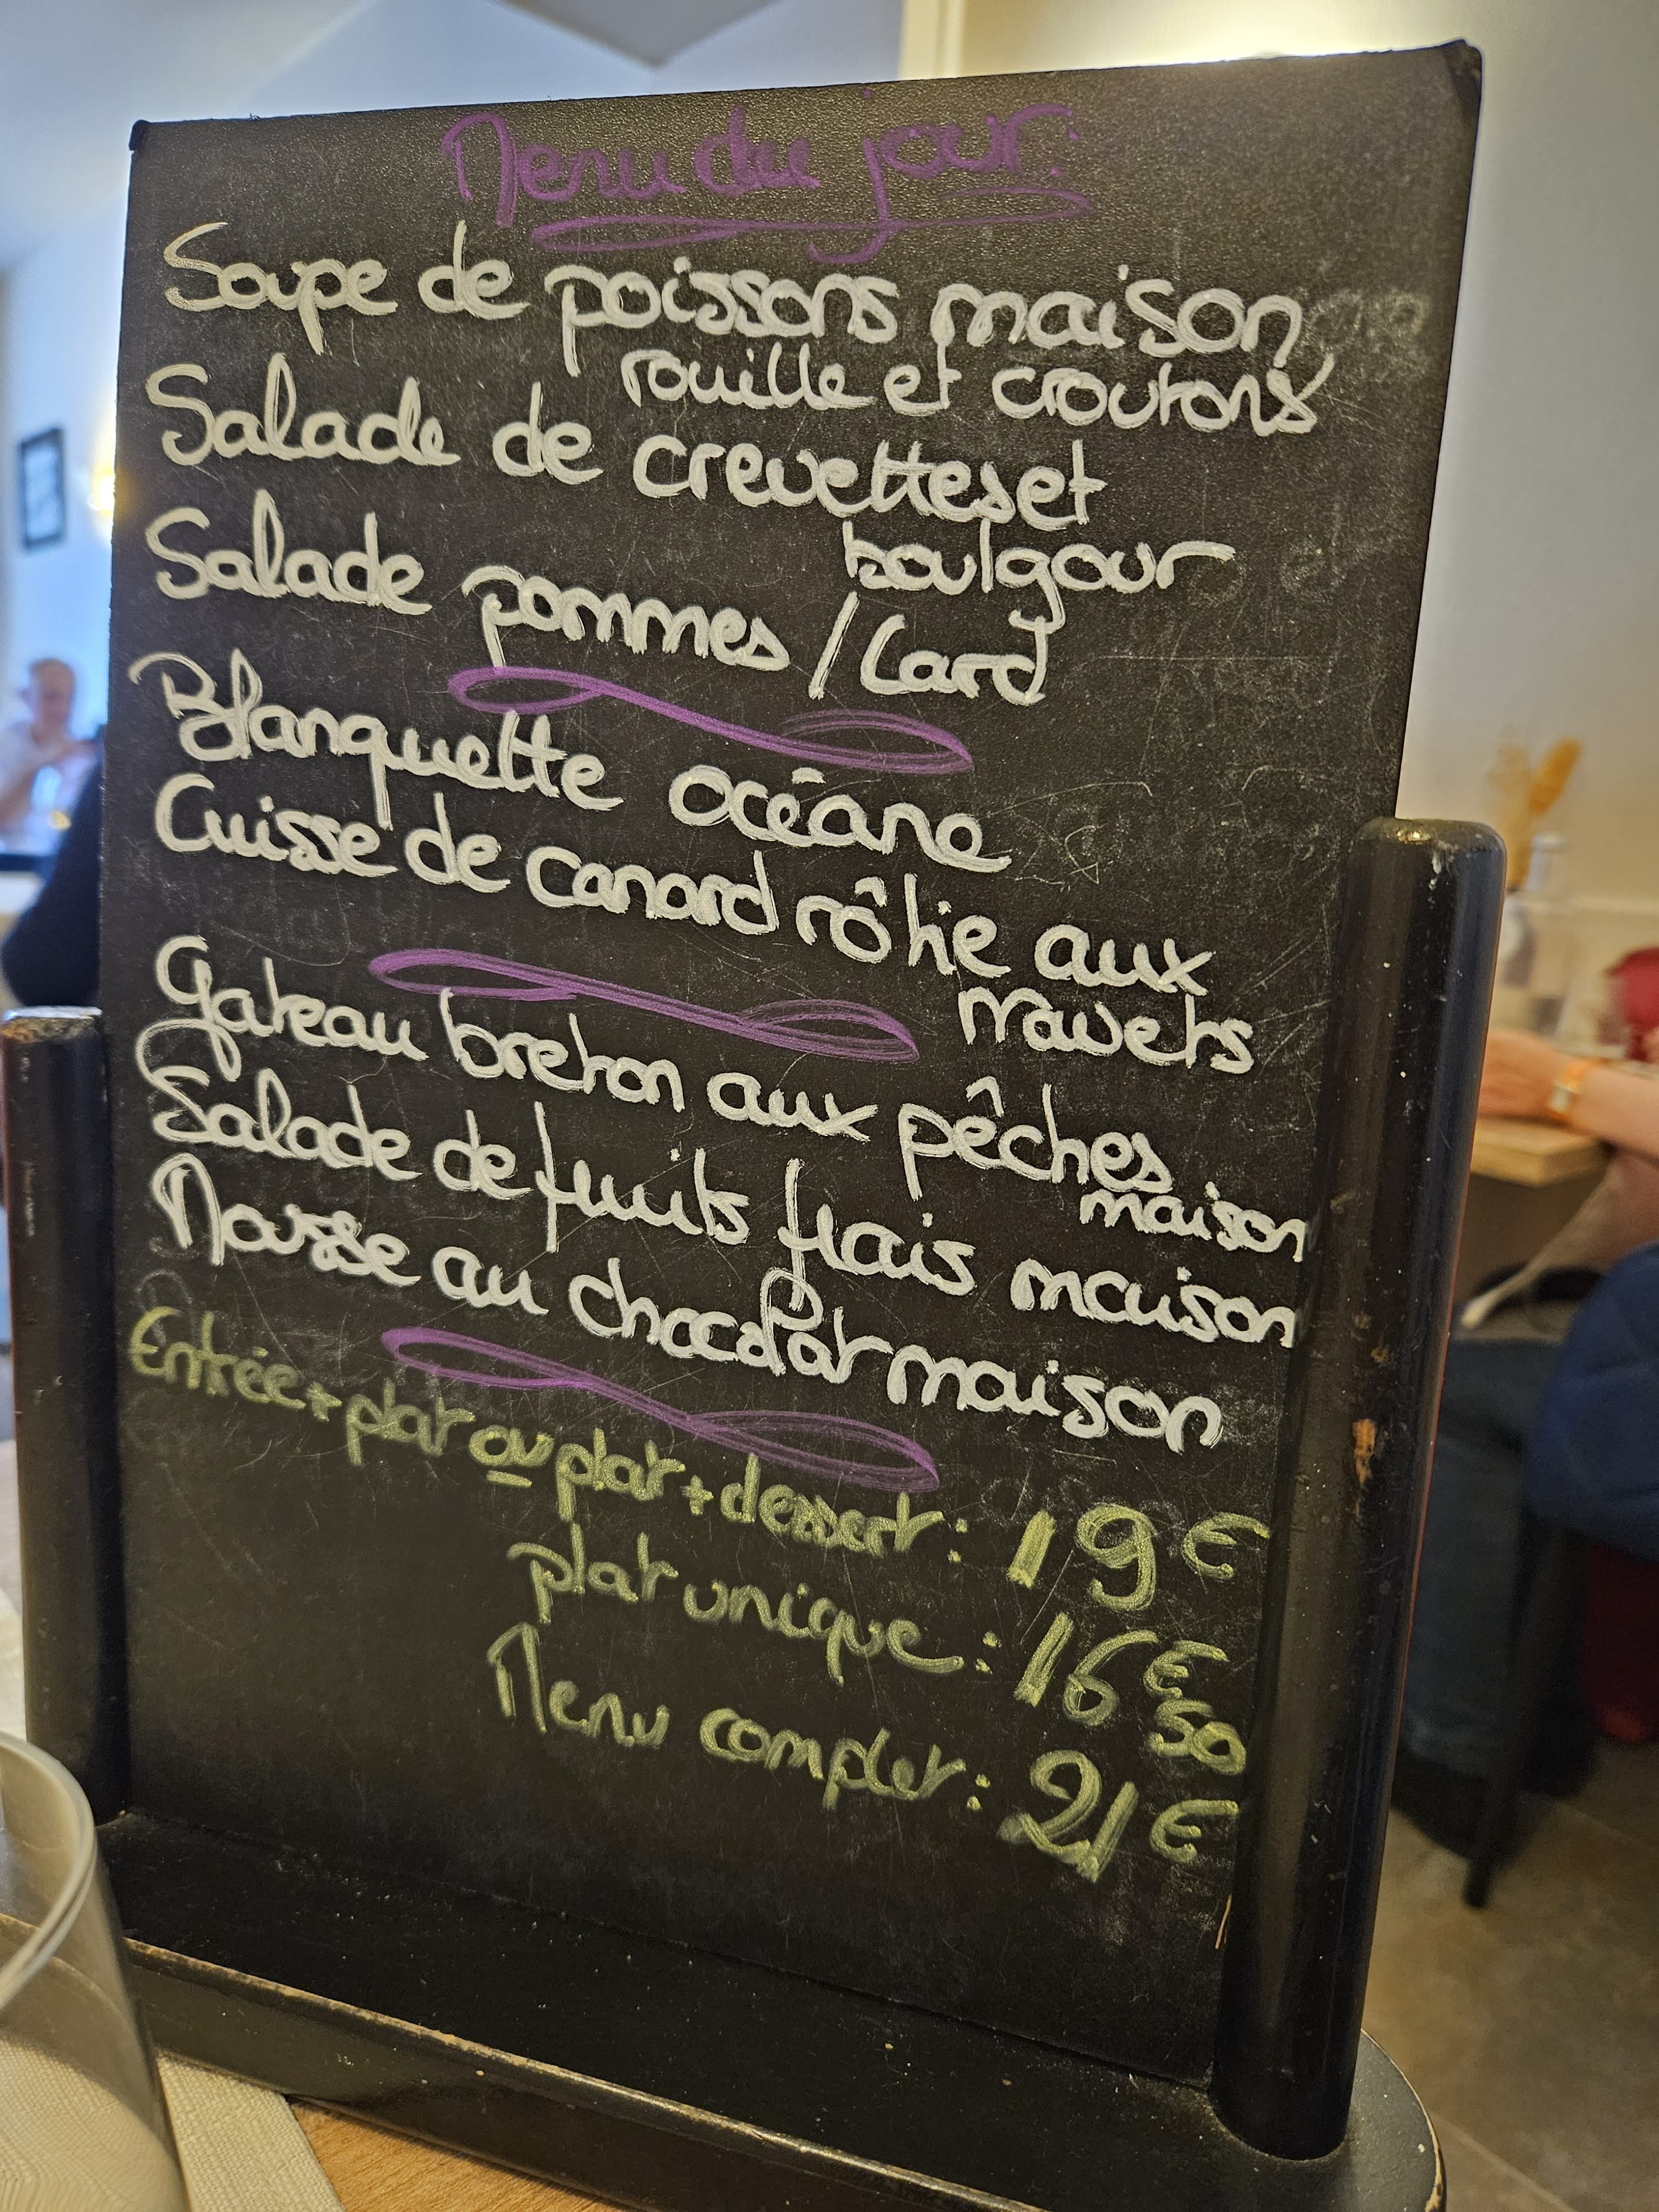 Menu du jour:
Soupe de poissons maison
rouille et croutons
Salade de crevettes et
boulgour
Salade pommes / Lard
Blanquette océane
Cuisse de canard rôtie aux
navets
Gateau breton aux pêches
maison
Salade de fruits frais maison
Mousse au chocolat maison
Entrée + plat ou plat + dessert : 19€
plat unique : 16€50
Menu complet : 21€